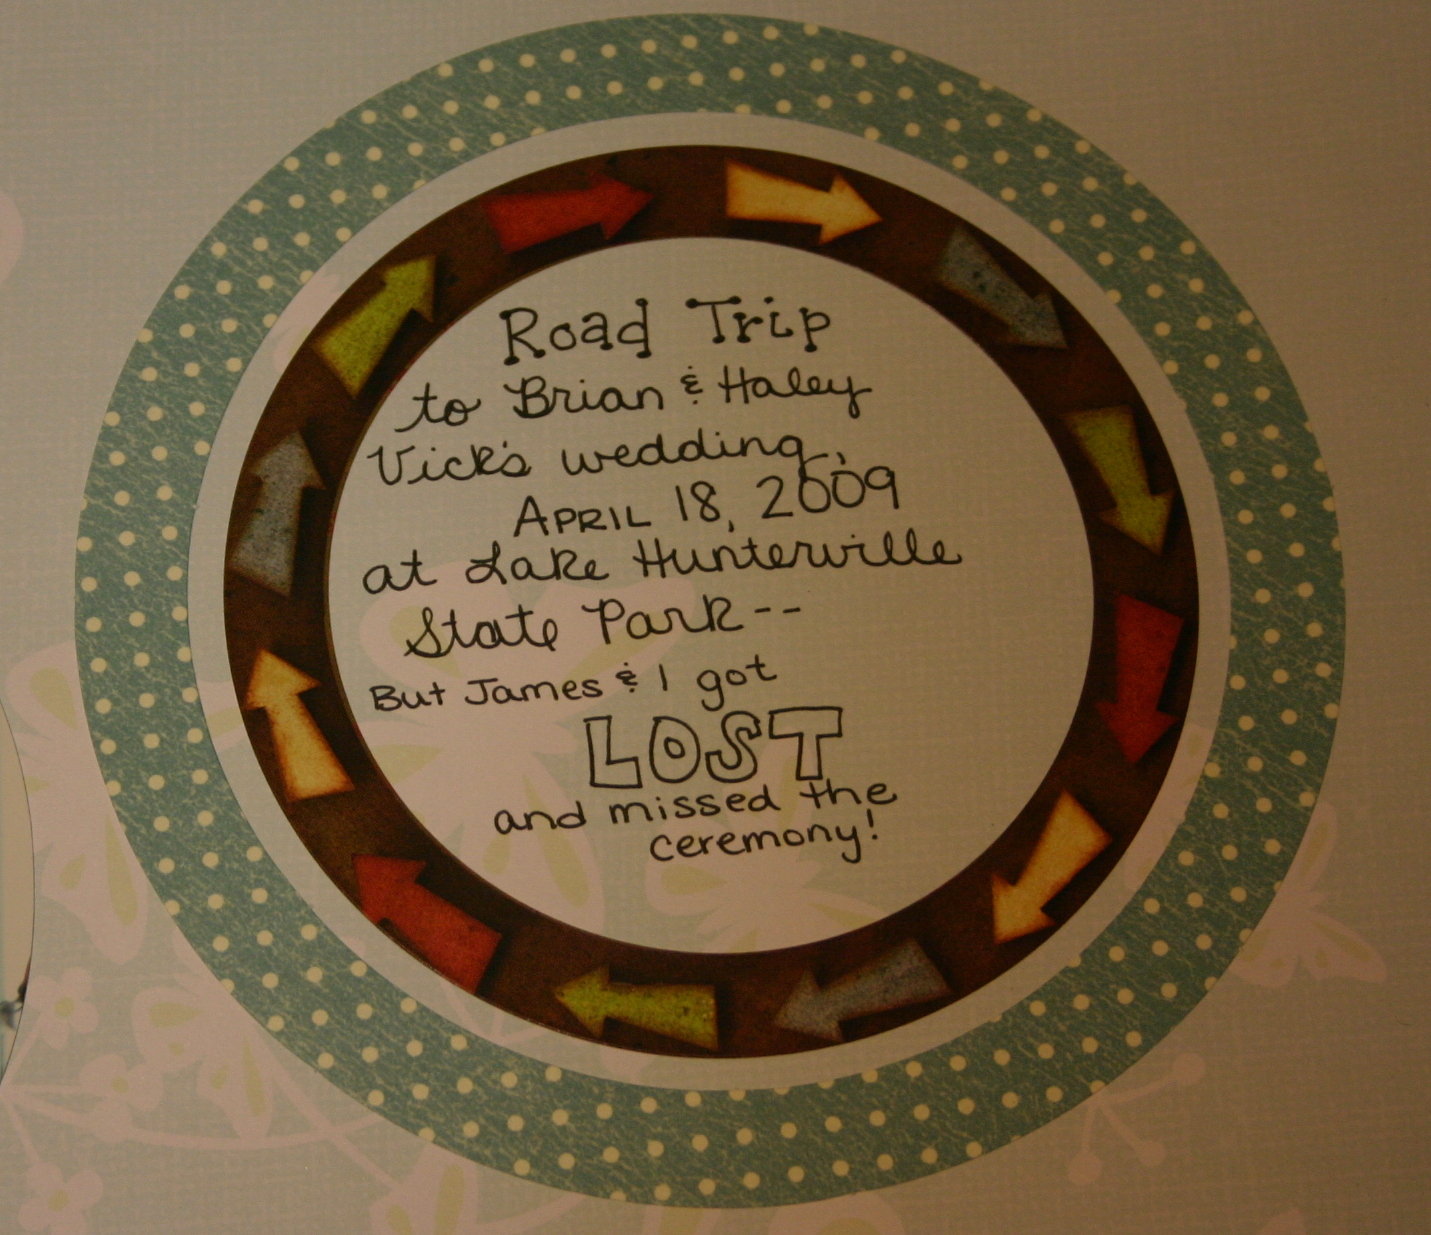 Road Trip
to Brian & Haley
Vick's wedding,
APRIL 18, 2009
at Lake Hunterville
State Park--
But James & I got
LOST
and missed the
ceremony!